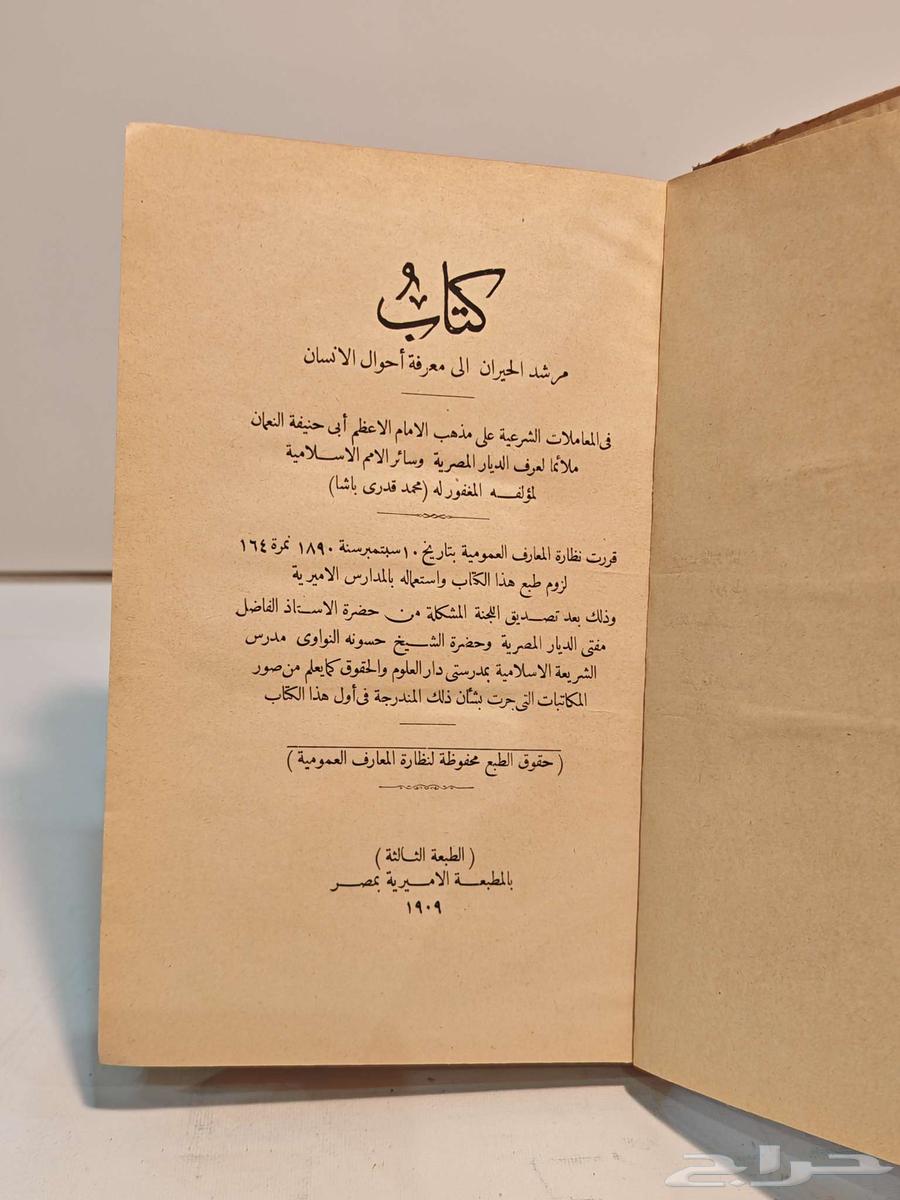 كتابُ
مرشد الحيران الى معرفة أحوال الانسان
فى المعاملات الشرعية على مذهب الامام الاعظم أبى حنيفة النعمان
ملائما لعرف الديار المصرية وسائر الامم الاسلامية
لمؤلفه المغفور له (محمد قدرى باشا)
قررت نظارة المعارف العمومية بتاريخ ١٠ سبتمبر سنة ١٨٩٠ نمرة ١٦٤
لزوم طبع هذا الكتاب واستعماله بالمدارس الاميرية
وذلك بعد تصديق اللجنة المشكلة من حضرة الاستاذ الفاضل
مفتى الديار المصرية وحضرة الشيخ حسونه النواوى مدرس
الشريعة الاسلامية بمدرستى دار العلوم والحقوق كما يعلم من صور
المكاتبات التى جرت بشأن ذلك المندرجة فى أول هذا الكتاب
(حقوق الطبع محفوظة لنظارة المعارف العمومية)
(الطبعة الثالثة)
بالمطبعة الاميرية بمصر
١٩٠٩
حراج